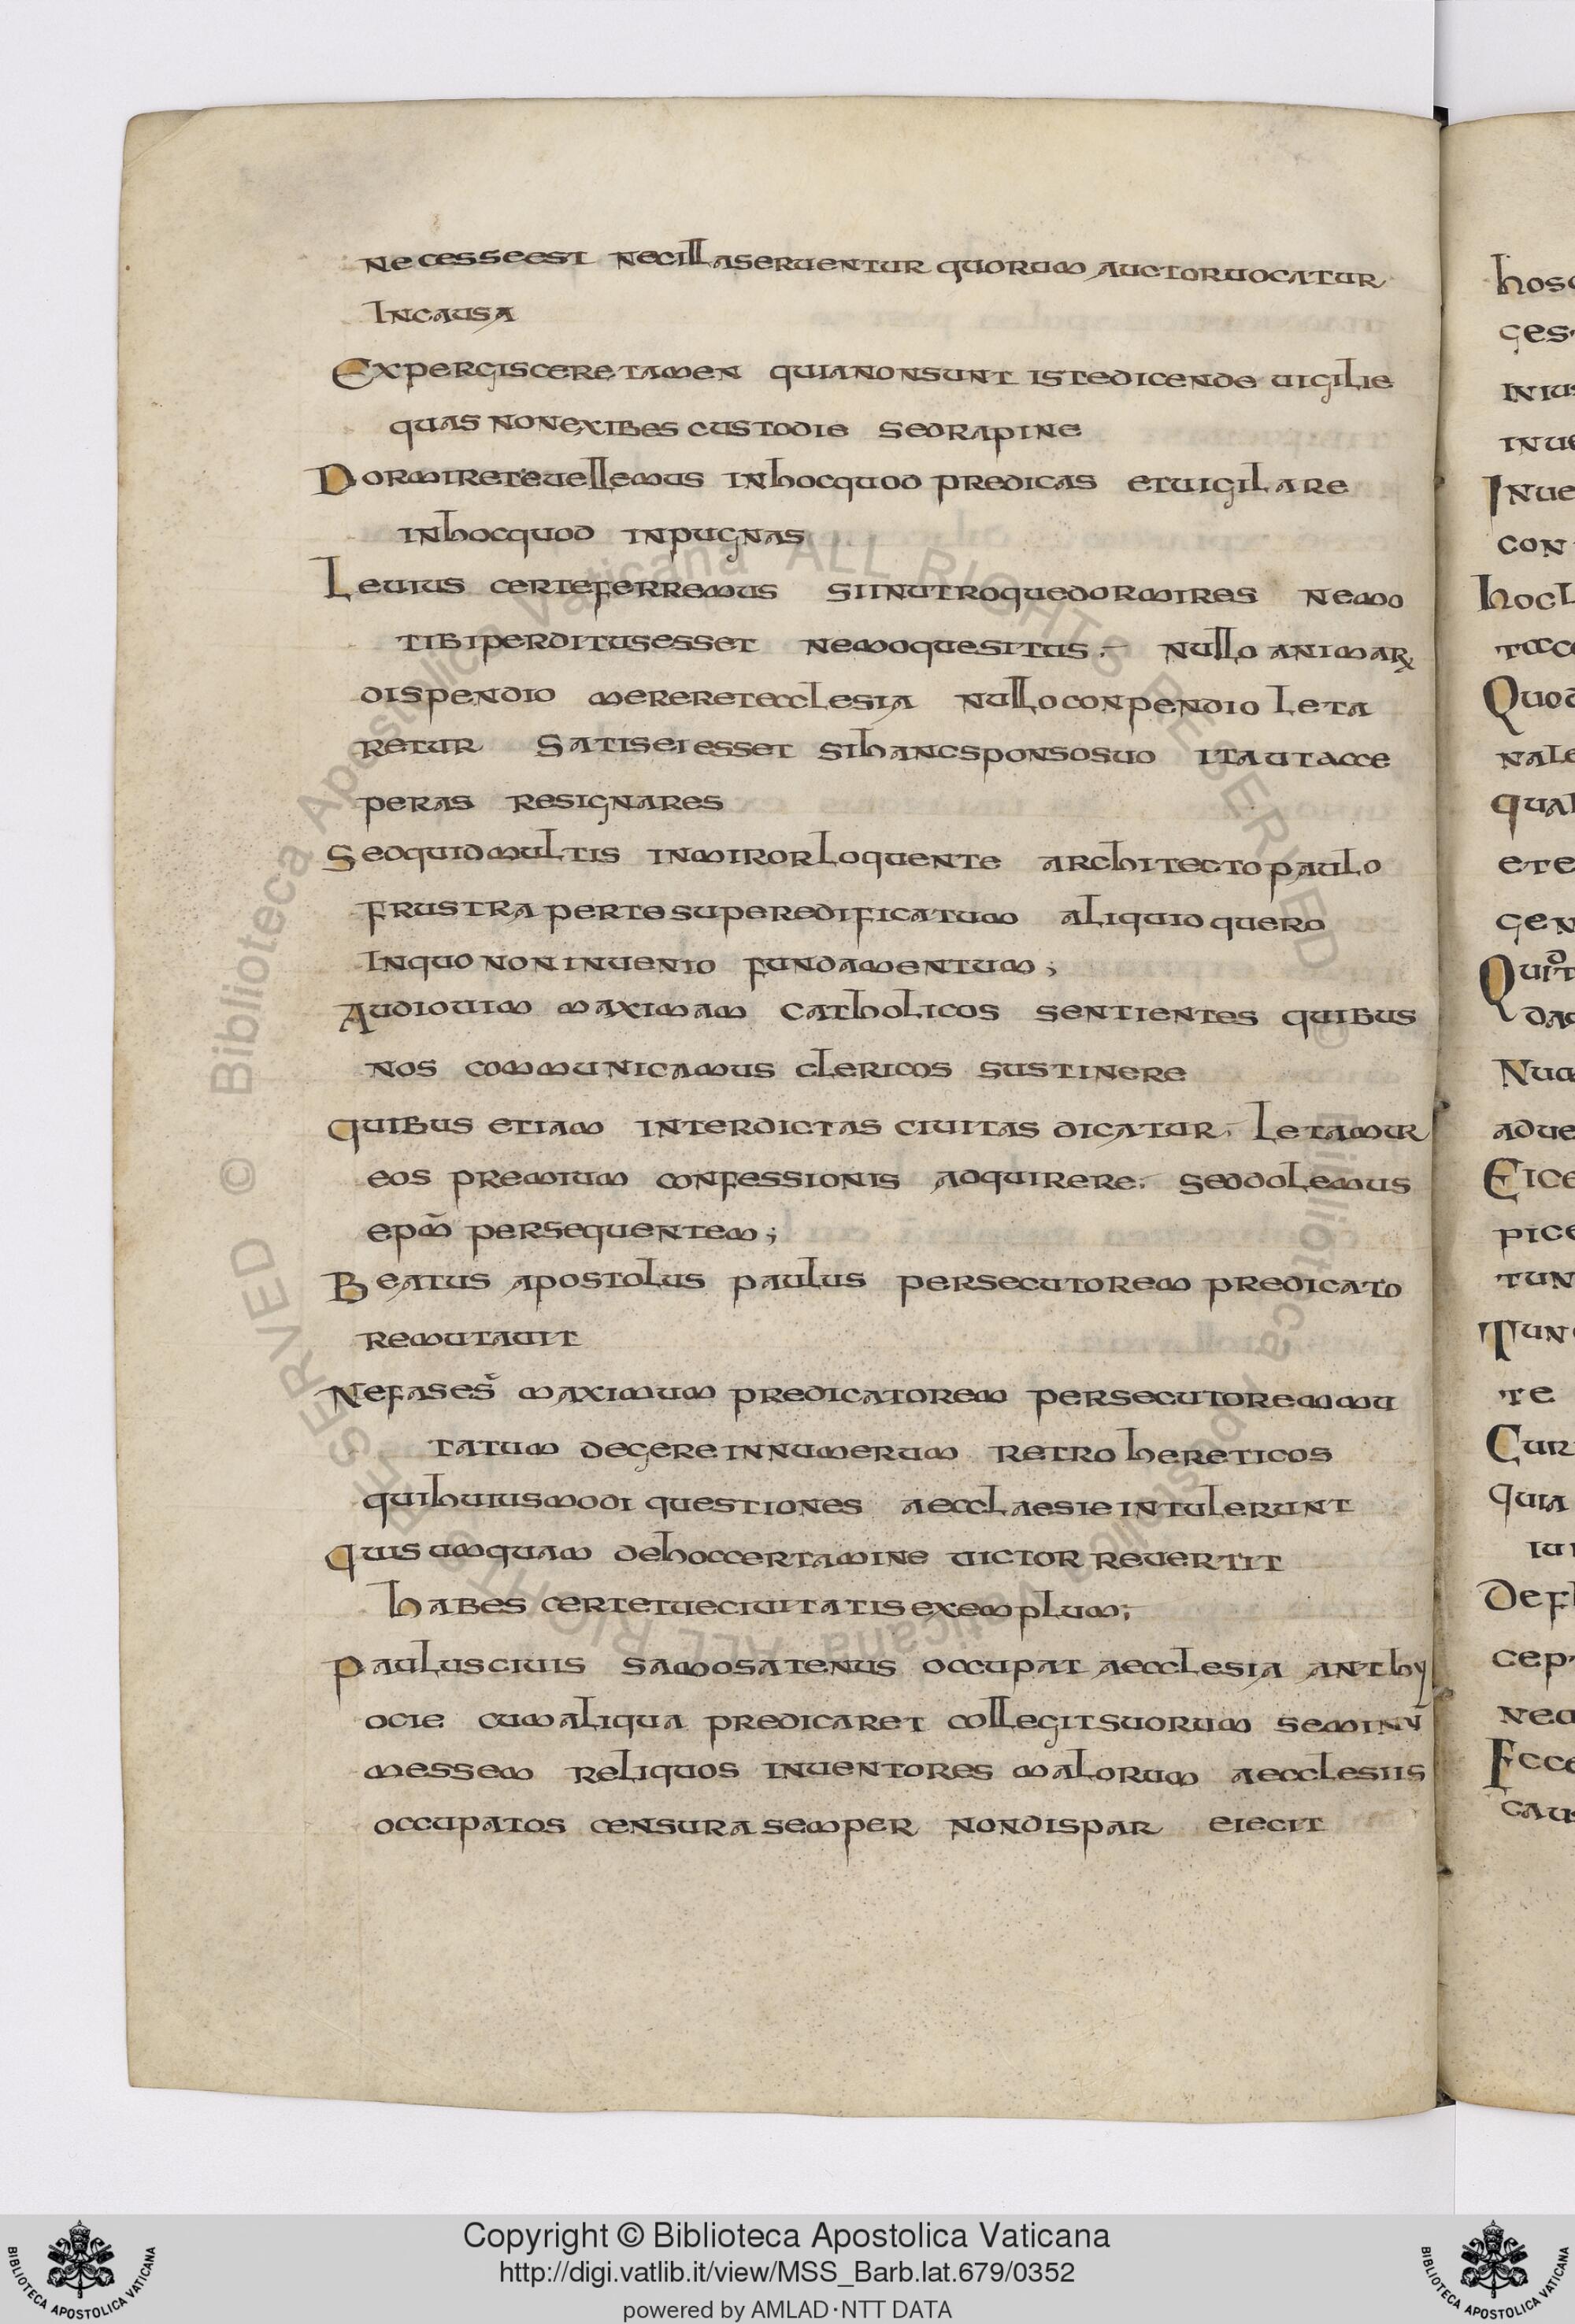 necesseest necillaseruentur quorum auctoruocatur
Incausa
Expergisceretamen quianonsunt istedicende uigilie
quas nonexibes custodie sedrapine
Dormireteuellemus inhocquod predicas etuigilare
inhocquod inpugnas
Leuius certeferremus siinutroquedormires nemo
tibiperditusesset nemoquesitus. nullo animarꝝ
dispendio mereretecclesia nulloconpendio leta
retur Satiseiesset sihancsponsosuo itautacce
peras resignares
Sedquidmultis inmirorloquente architectopaulo
frustra perte superedificatum aliquid quero
inquo noninuenio fundamentum;
Audiouim maximam catholicos sentientes quibus
nos communicamus clericos sustinere
quibus etiam interdictas ciuitas dicatur. letamur
eos premium confessionis adquirere. seddolemus
epm̄ persequentem;
Beatus apostolus paulus persecutorem predicato
remutauit
Nefases̄ maximum predicatorem persecutoremmu
tatum degereinnumerum retro hereticos
quihuiusmodi questiones aecclaesieintulerunt
Quis umquam dehoccertamine uictor reuertit
habes certetueciuitatisexemplum;
Pauluscivis samosatenus occupat aecclesia anthy
ocie cumaliqua predicaret collegitsuorum seminū
messem reliquos inuentores malorum aecclesiis
occupatos censura semper nondispar eiecit
hos
ges
iniu
inue
Inue
con
hocl
Quod
nale
qual
ete
gen
Num
adue
Eice
pice
tun
Tun
te
Cur
quia
Def
cep
Ecce
cau
© Biblioteca Apostolica Vaticana ALL RIGHTS RESERVED
© Biblioteca Apostolica Vaticana ALL RIGHTS RESERVED
Copyright © Biblioteca Apostolica Vaticana
http://digi.vatlib.it/view/MSS_Barb.lat.679/0352
powered by AMLAD·NTT DATA
BIBLIOTECA APOSTOLICA VATICANA
BIBLIOTECA APOSTOLICA VATICANA